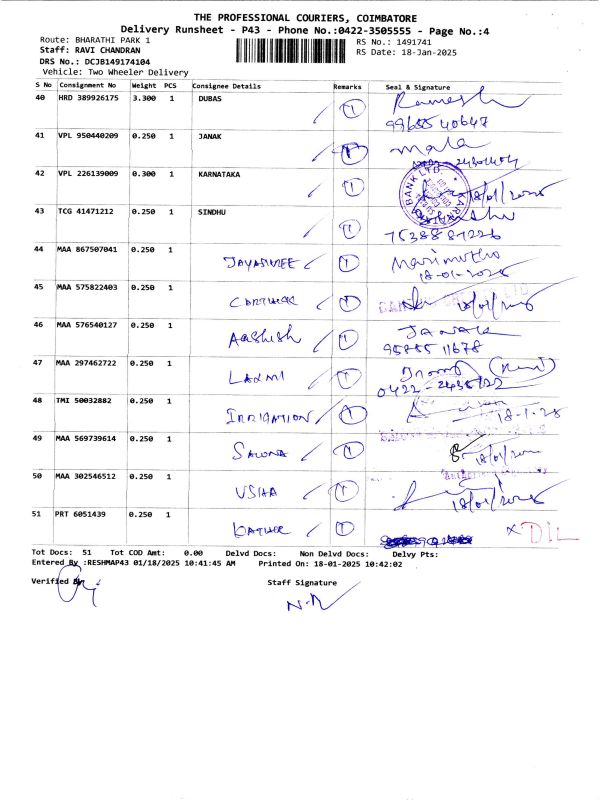 THE PROFESSIONAL COURIERS, COIMBATORE
Delivery Runsheet - P43 - Phone No.:0422-3505555 - Page No.:4
Route: BHARATHI PARK 1 RS No.: 1491741
Staff: RAVI CHANDRAN RS Date: 18-Jan-2025
DRS No.: DCJB149174104
Vehicle: Two Wheeler Delivery
S No Consignment No Weight PCS Consignee Details Remarks Seal & Signature
40 HRD 389926175 3.300 1 DUBAS 1 Ramesh
9965540647
41 VPL 950440209 0.250 1 JANAK 1 Mala
42 VPL 226139009 0.300 1 KARNATAKA 1 18/01/2025
BANK LTD.
43 TCG 41471212 0.250 1 SINDHU 1
7538887226
44 MAA 867507041 0.250 1 JAYASHREE 1 Marimuthu
18-01-2025
45 MAA 575822403 0.250 1 1 18/01/2025
46 MAA 576540127 0.250 1 Aashish 1 Janak
9585511678
47 MAA 297462722 0.250 1 LAXMI 1
48 TMI 50032882 0.250 1 IRRIGATION 1 18-1-25
49 MAA 569739614 0.250 1 1
50 MAA 302546512 0.250 1 USHA 1 18/01/2025
51 PRT 6051439 0.250 1 1 X DIL
Tot Docs: 51 Tot COD Amt: 0.00 Delvd Docs: Non Delvd Docs: Delvy Pts:
Entered By :RESHMAP43 01/18/2025 10:41:45 AM Printed On: 18-01-2025 10:42:02
Verified By Staff Signature
N.R